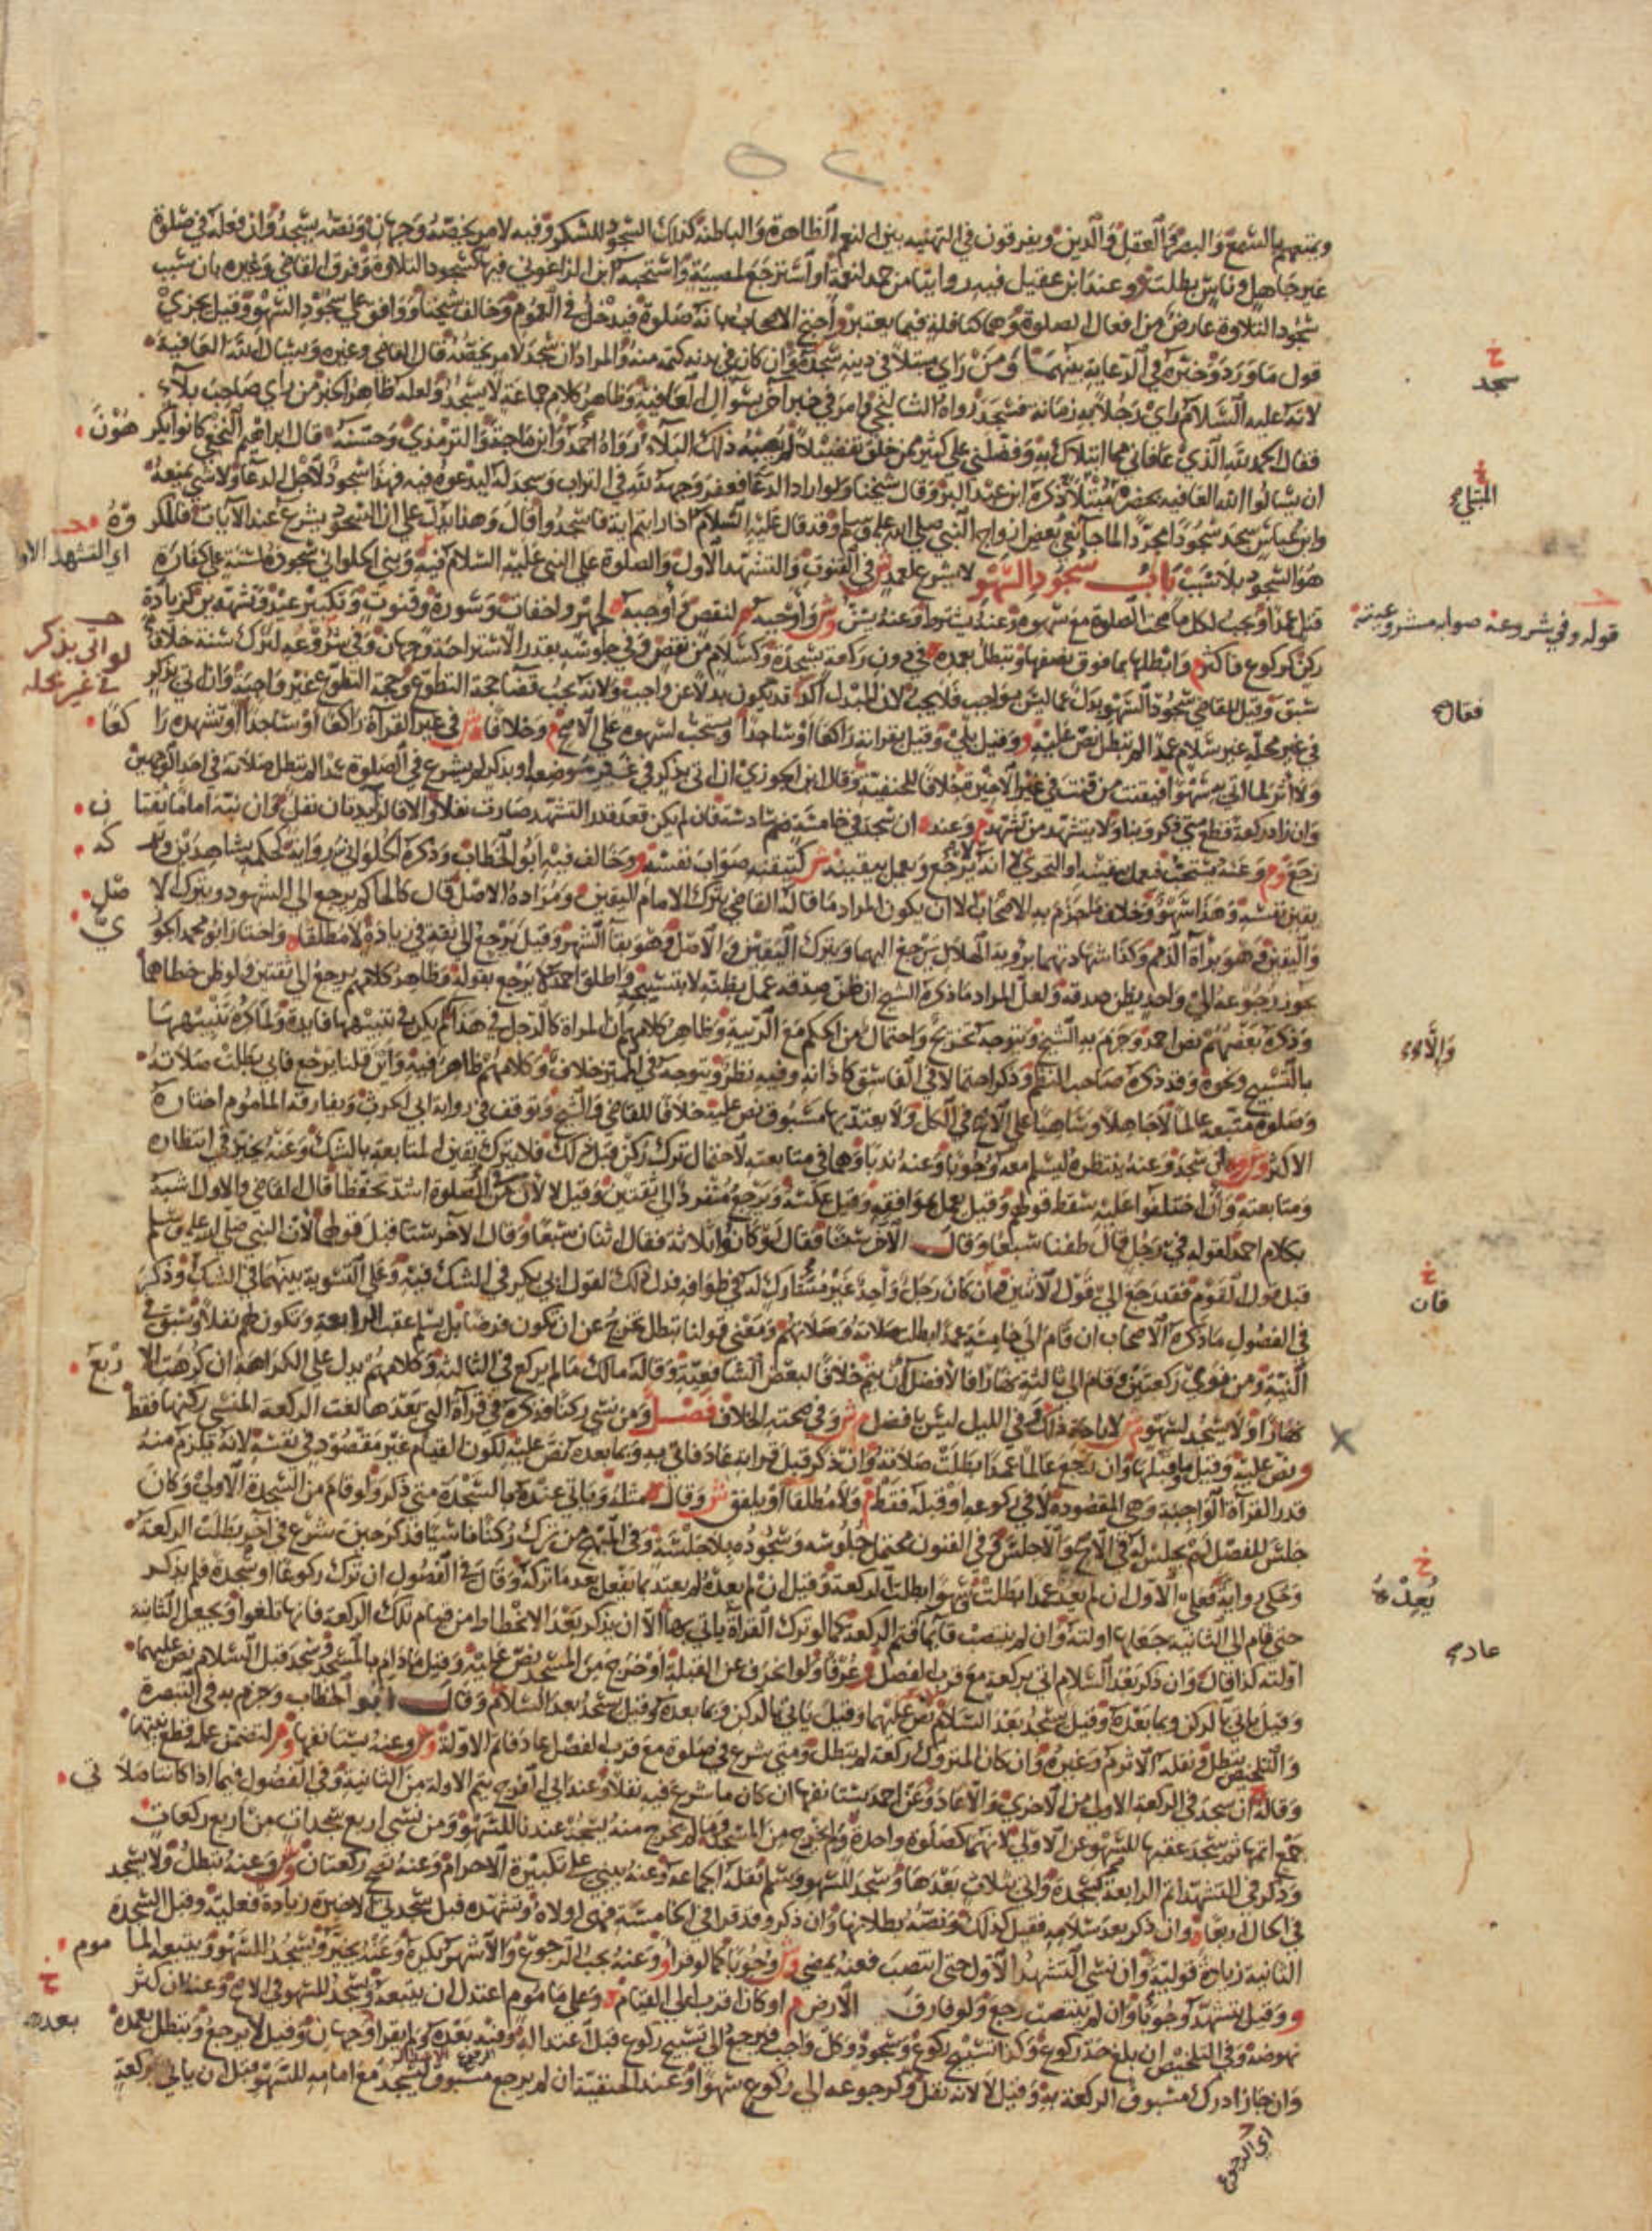 ويمتعهم بالسمع والبصر والعقل والدين ويفرقون في التهنيه بين النعم الظاهرة والباطنة كذلك السجود للشكر وفيه لامر يخصه وجهان ونصه يسجد وان فعله في صلوة
غير جاهل وناس بطلت و وعند ابن عقيل فيه روايتا من حمد لنعمة او استرجع لمصيبة واستحبه ابن الزاغوني فيها كسجود التلاوة وفرق القاضي وغيره بان سبب
سجود التلاوة عارض من افعال الصلوة وهما كنافلة فيما يعتبر واحتج الاصحاب بانه صلوة فيدخل في العموم وخالف شيخنا ووافق على سجود السهو وقيل يجزئ
قول ما ورد وخيره في الرعاية بينهما ومن راى مبتلا في دينه سجد وان كان في بدنه كتمه منه والمراد ان سجد لامر يخصه قال القاضي وغيره ويسال الله العافية
لانه عليه السلام راى رجلا به زمانة فسجد رواه الشالنجي وامر في خبر آخر بسؤال العافية وظاهر كلام جماعة لا يسجد ولعله ظاهر الخبر من راى صاحب بلاء
فقال الحمد لله الذي عافاني مما ابتلاك به وفضلني على كثير ممن خلق تفضيلا لم يصبه ذلك البلاء رواه احمد وابن ماجة والترمذي وحسنه قال ابراهيم النخعي كانوا يكرهون
ان يسالوا الله العافيه بحضرة المبتلا ذكره ابن عبد البر وقال شيخنا ولو اراد الدعا فعفر وجهه لله في التراب وسجد له ليدعوه فيه فهذا سجود لاجل الدعا ولا شي يمنعه
وابن عباس سجد سجودا مجردا لما جا نعي بعض ازواج النبي صلى الله عليه وسلم وقد قال عليه السلام اذا رايتم اية فاسجدوا قال وهذا يدل على ان السجود يشرع عند الآيات فالمكروه
هو السجود بلا سبب باب سجود السهو لا يشرع لعمد ش في القنوت والتشهد الاول والصلوة على النبي عليه السلام فيه وبنى الحلواني سجوده لسنة على كفارة
قتل عمد ويجب لكل ما صحت الصلوة مع سهوه وعنه يشترط وعنه يسن و ش واوجبه م لنقص واوجبه ه لجهر واخفات وسورة وقنوت وتكبير عيد وتشهدين كزيادة
ركن كركوع فاكثر وابطلها بما فوق نصفها وتبطل بعمده في دون ركعة بسجدة وكسلام من نقص وفي جلوسه بقدر الاستراحة وجهان وفي شروعه لترك سنة خلاف
سبق وقيل للقاضي سجود السهو بدل عما ليس بواجب فلا يجب لان المبدل آكد قد يكون بدلا عن واجب ولانه يجب قضا حجة التطوع وحجة التطوع غير واجبة وان اتى بذكر
في غير محله غير سلام عمدا لم تبطل نص عليه و وقيل بلى وقيل بقرائه راكعا او ساجدا ويستحب لسهوه على الاصح م وخلافا ه ش في غير القرآة راكعا او ساجدا او تشهده راكعا
ولا اثر لما اتى به سهوا فيقنت من قنت في غير الاخيرة خلافا للحنفية وقال ابن الجوزي ان اتى بذكر في غير موضعه او بذكر لم يشرع في الصلوة عمدا لم تبطل صلاته في احد الوجهين
وان زاد ركعة قطع متى ذكر وبنا ولا يتشهد من تشهد وعند ه ان سجد في خامسة ضم سادسة فان لم يكن قعد قدر التشهد صارت نفلا والا فالزايدتان نفل وان نبه اماما ثقتان
رجع و م وعنه يستحب فيعمل بيقينه او التحري لا انه يرجع ويعمل بيقينه ش كتيقنه صواب نفسه و وخالف فيه ابو الخطاب وذكره الحلواني رواية كحكمه بشاهدين وتركه
يقين نفسه وهذا سهو وخلاف ما جزم به الاصحاب الا ان يكون المراد ما قاله القاضي بترك الامام اليقين ومراده الاصل قال كالحاكم يرجع الى الشهود ويترك الاصل
واليقين وهو براة الذمم وكذا شهادتهما بروية الهلال يرجع اليهما ويترك اليقين والاصل وهو بقا الشهر وقيل يرجع الى ثقة في زيادة لا مطلقا ه واختار ابو محمد الجوزي
يجوز رجوعه الى واحد يظن صدقه ولعل المراد ما ذكره الشيخ ان ظن صدقه عمل بظنه لا بتسبيحه واطلق احمد لا يرجع بقوله وظاهر كلامهم يرجع الى ثقتين ولو ظن خطاهما
وذكره بعضهم نص احمد وجزم به الشيخ ويتوجه تخريج واحتمال من الحكم مع الريبة وظاهر كلامهم ان المراة كالرجل في هذا لم يكن في تنبيهها فايدة ولما كره تنبيهها
بالتسبيح ونحوه وقد ذكره صاحب النظم وذكر احتمالا في الفاسق كاذانه وفيه نظر ويتوجه في المميز خلاف وكلامهم ظاهر فيه وان قلنا يرجع فابى بطلت صلاته
وصلوة متبعه عالما لا جاهلا وساهيا على الاصح في الكل ولا يعتد بها مسبوق نص عليه خلافا للقاضي والشيخ وتوقف في رواية ابي الحرث ويفارقه الماموم اختاره
الاكثر و ش و م ان سجد وعنه ينتظره ليسلم معه وجوبا وعنه ندبا وهما في متابعته لاحتمال ترك ركن قبل ذلك فلا يترك يقين المتابعة بالشك وعنه يخير في انتظاره
ومتابعته وان اختلفوا عليه سقط قولهم وقيل يعمل بموافقه وقيل عكسه ويرجع منفرد الى ثقتين وقيل لا لان من في الصلوة اشد تحفظا قال القاضي والاول اشبه
بكلام احمد لقوله في رجل قال طفنا سبعا وقال الآخر ستا فقال لو كانوا ثلاثة فقال اثنان سبعا وقال الآخر ستا قبل قولهما لان النبي صلى الله عليه وسلم
قبل قول القوم فقد رجع الى قول الاثنين فان كان رجل واحد غير مشارك له في طوافه فدل ذلك لقول ابي بكر في الشك فيه وعلى التسوية بينهما في الشك وذكر
في الفصول ما ذكره الاصحاب ان قام الى خامسة عمدا بطلت صلاته وصلاتهم ومعنى قولنا تبطل تخرج عن ان تكون فرضا بل يسلم عقب الرابعة وتكون لهم نفلا وسبق في
النية ومن نوى ركعتين وقام الى ثالثة نهارا فالافضل ان يتم خلافا لبعض الشافعية وقاله مالك ما لم يركع في الثالثة وكلامهم يدل على الكراهة ان كرهت الاربع
نهارا ولا يسجد لسهو ش لاباحة ذلك وفي الليل ليس بافضل م ش وفي صحته الخلاف فصل ومن نسي ركنا فذكره في قرآة التي بعدها لغت الركعة المنسي ركنها فقط
ونص عليه وقيل وما قبلها وان رجع عالما عمدا بطلت صلاته وان ذكر قبل قرايته عاد فاتى به وبما بعده نص عليه لكون القيام غير مقصود في نفسه لانه يلزم منه
قدر القرآة الواجبة وهي المقصودة لا في ركوعه او قبله فقط م ولا مطلقا او يلفق ش وقال ه مثله وياتي عنده بالسجدة متى ذكر ولو قام من السجدة الاولى وكان
جلس للفصل لم يجلس له في الاصح والا جلس وفي الفنون يحتمل جلوسه وسجوده بلا جلسة وفي المبهج من ترك ركنا ناسيا فذكر حين شرع في آخر بطلت الركعة
وحكى رواية فعلى الاول ان لم يعد عمدا بطلت وسهوا بطلت الركعة وقيل ان لم يعده لم يعتد بما يفعل بعد ما تركه وقال في الفصول ان ترك ركوعا او سجدة فلم يذكر
حتى قام الى الثانية جعلها اولته وان لم ينتصب قايما فتم الركعة كما لو ترك القرآة ياتي بها الا ان يذكر بعد الانحطاط من قيام تلك الركعة فانها تلغوا ويجعل الثانية
اولته كذا قال وان ذكر بعد السلام اتى بركعة مع قرب الفصل عرفا ولو انحرف عن القبلة او خرج من المسجد نص عليه وقيل ما دام بالمسجد وسجد قبل السلام نص عليهما
وقيل ياتي بالركن وبما بعده وقيل يسجد بعد السلام نص عليهما وقيل ياتي بالركن وبما بعده وقيل يسجد بعد السلام وقال ابو الخطاب وجزم به في التبصرة
والتلخيص تبطل ونقله الاثرم وغيره وان كان المتروك ركعة لم تبطل ومتى شرع في صلوة مع قرب الفصل عاد فاتم الاولة و ش وعنه يستانفها و م لتضمن عمله قطع نيتها
وقاله ان سجد في الركعة الاولى من الاخرى والا عاد وعن احمد يستانفها ان كان ما شرع فيه نفلا وعند ابي الفرج يتم الاولة من الثانية وفي الفصول فيما اذا كانتا صلاتي
جمع اتمها ثم سجد عقبها للسهو عن الاولى لانهما كصلوة واحدة ولم يخرج من المسجد وما لم يخرج منه يسجد عندنا للسهو ومن نسي اربع سجدات من اربع ركعات
وذكر في التشهد اتم الرابعة بسجدة واتى بثلاث بعدها وسجد للسهو وسلم نقله الجماعة وعنه يبني على تكبيرة الاحرام وعنه تصح ركعتان و ش وعنه تبطل ولا يسجد
في الحال اربعا ه وان ذكر بعد سلامه فقيل كذلك ونصه بطلانها وان ذكر وقد قرا في الخامسة فهي اولاه وتشهده قبل سجدتي الاخيرة زيادة فعلية وقبل السجدة
الثانية زيادة قولية وان نسي التشهد الاول حتى انتصب فعنه يمضي و ش وجوبا كما لو قرا و وعنه يجب الرجوع والاشهر يكره وعنه يخير ويسجد للسهو ويتبعه الماموم
و وقيل يتشهد وجوبا وان لم ينتصب رجع ولو فارق الارض م او كان اقرب الى القيام ه وعلى ماموم اعتدل ان يتبعه ويسجد للسهو في الاصح وعنه ان كثر
نهوضه وفي التلخيص ان بلغ حد ركوع وكذا تسبيح ركوع وسجود وكل واجب فيرجع الى تسبيح ركوع قبل اعتداله وفيه بعده ولم يقرا وجهان وقيل لا يرجع وتبطل بعمده
وان جاز ادرك مسبوق الركعة به وقيل لا لانه نفل وكرجوعه الى ركوع سهوا وعند الحنفية ان لم يرجع مسبوق ليسجد مع امامه للسهو قبل ان ياتي بركعة
خ
سجد
خ
المبتلى
قوله وفي شروعه صوابه مشروعيته
فقال
والا
خ
فان
خ
يعده
عاد
اي التشهد الاول
لو اتى بذكر
في غير محله
خ
بعد
اي الرجوع